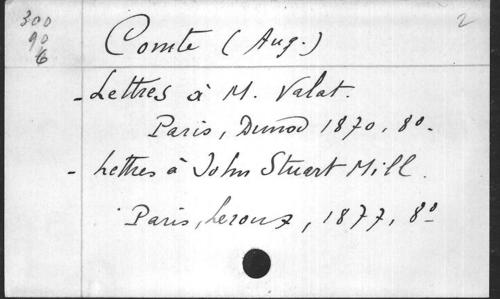 300
90
6
2
Comte (Aug.)
- Lettres à M. Valat.
Paris, Dunod 1870, 8o.
- Lettres à John Stuart Mill.
Paris, Leroux, 1877, 8o